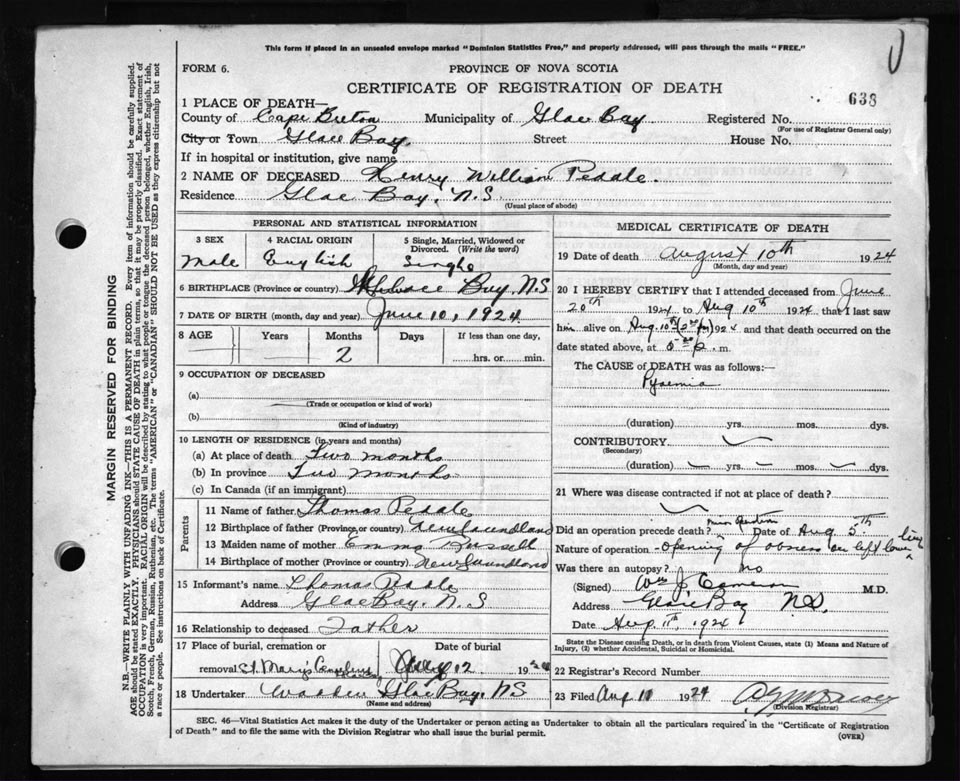 This form if placed in an unsealed envelope marked "Dominion Statistics Free," and properly addressed, will pass through the mails "FREE."
FORM 6.
PROVINCE OF NOVA SCOTIA
CERTIFICATE OF REGISTRATION OF DEATH
638
1 PLACE OF DEATH—
County of Cape Breton Municipality of Glace Bay Registered No.
(For use of Registrar General only)
City or Town Glace Bay. Street House No.
If in hospital or institution, give name
2 NAME OF DECEASED Henry William Peddle.
Residence Glace Bay, N.S.
(Usual place of abode)
PERSONAL AND STATISTICAL INFORMATION
3 SEX 4 RACIAL ORIGIN 5 Single, Married, Widowed or Divorced. (Write the word)
Male English Single
6 BIRTHPLACE (Province or country) Glace Bay. N.S
7 DATE OF BIRTH (month, day and year) June 10, 1924
8 AGE Years Months Days If less than one day,
2 hrs. or min.
9 OCCUPATION OF DECEASED
(a)
(Trade or occupation or kind of work)
(b)
(Kind of industry)
10 LENGTH OF RESIDENCE (in years and months)
(a) At place of death Two months
(b) In province Two months
(c) In Canada (if an immigrant)
Parents
11 Name of father Thomas Peddle
12 Birthplace of father (Province, or country) Newfoundland
13 Maiden name of mother Emma Russell
14 Birthplace of mother (Province, or country) Newfoundland
15 Informant's name Thomas Peddle
Address Glace Bay. N.S
16 Relationship to deceased Father
17 Place of burial, cremation or Date of burial
removal St. Mary's 12 1924
18 Undertaker Glace Bay. NS
(Name and address)
MEDICAL CERTIFICATE OF DEATH
19 Date of death August 10th 1924
(Month, day and year)
20 I HEREBY CERTIFY that I attended deceased from June
20th 1924 to Aug 10th 1924 that I last saw
him alive on Aug. 10th 1924 and that death occurred on
date stated above, at p. m.
The CAUSE of DEATH was as follows:—
Pyaemia
(duration) yrs. mos. dys.
CONTRIBUTORY
(Secondary)
(duration) yrs. mos. dys.
21 Where was disease contracted if not at place of death?
Did an operation precede death? Minor Operation Date of Aug 5th
Nature of operation Opening of abscess on left lower limb
Was there an autopsy? No
(Signed) Wm J Cameron M.D.
Address Glace Bay NS.
Date Aug. 11th 1924
State the Disease causing Death, or in death from Violent Causes, state (1) Means and Nature of Injury, (2) whether Accidental, Suicidal or Homicidal.
22 Registrar's Record Number
23 Filed Aug 11 1924
(Division Registrar)
SEC. 46—Vital Statistics Act makes it the duty of the Undertaker or person acting as Undertaker to obtain all the particulars required in the "Certificate of Registration
of Death" and to file the same with the Division Registrar who shall issue the burial permit.
(OVER)
MARGIN RESERVED FOR BINDING
N.B.—WRITE PLAINLY WITH UNFADING INK—THIS IS A PERMANENT RECORD. Every item of information should be carefully supplied.
AGE should be stated EXACTLY. PHYSICIANS should STATE CAUSE OF DEATH in plain terms, so that it may be properly classified. Exact statement of
OCCUPATION is very important. RACIAL ORIGIN will be described by stating to what people or tongue the deceased person belonged, whether English, Irish,
Scotch, French, German, Russian, Ruthenian, etc. The terms "AMERICAN" or "CANADIAN" SHOULD NOT BE USED as they express citizenship but not
a race or people. See instructions on back of Certificate.